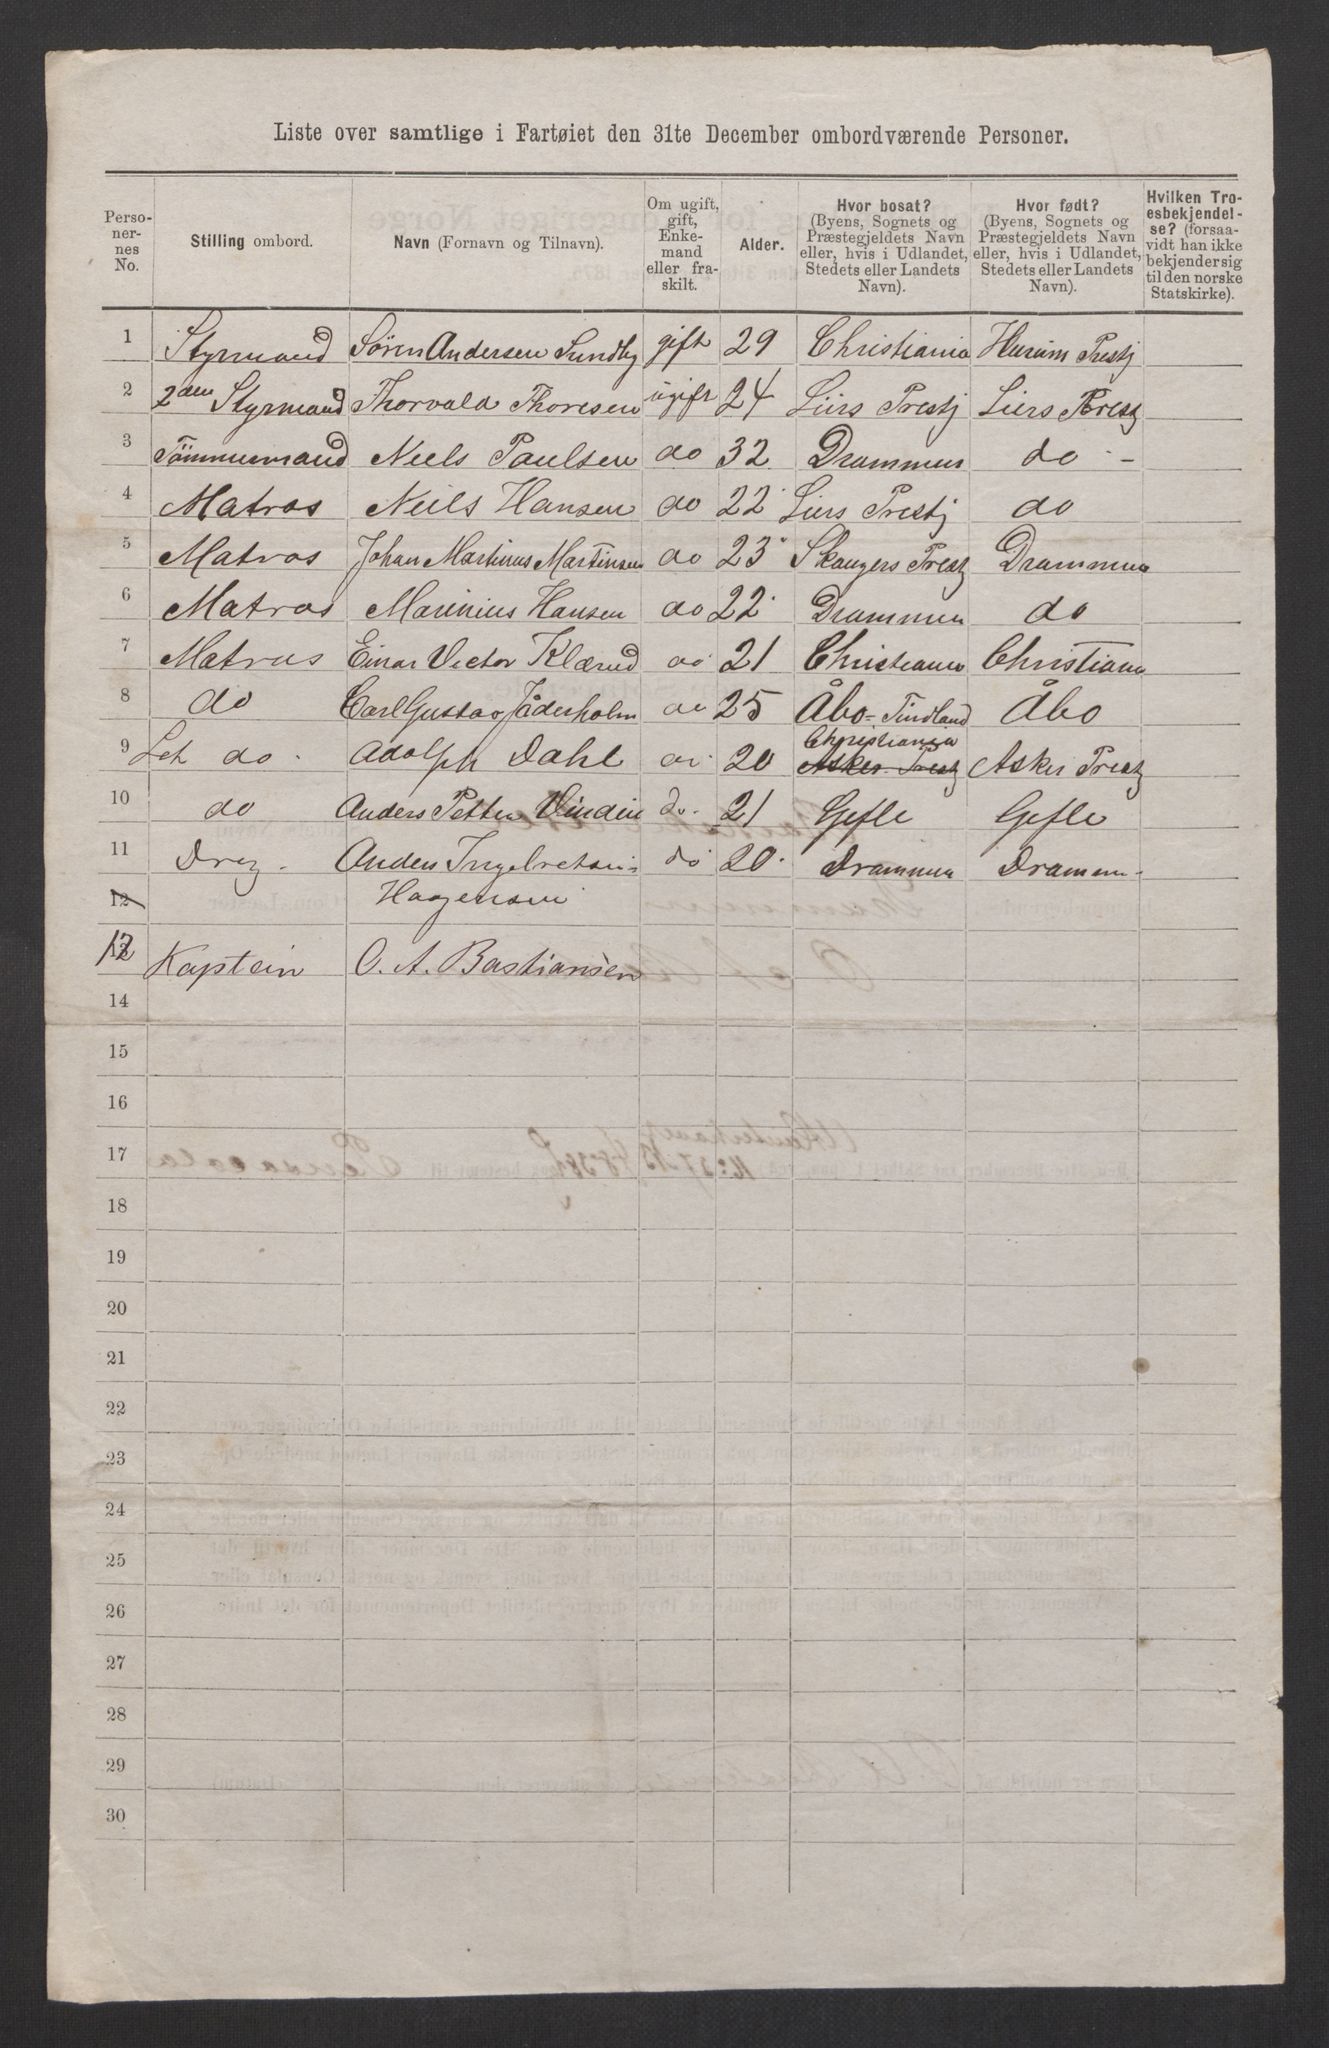 Liste over samtlige i Fartøiet den 31te December ombordværende Personer.
Perso-
ner-
nes
No.
Stilling ombord.
Navn (Fornavn og Tilnavn).
Om ugift,
gift,
Enke-
mand
eller fra-
skilt.
Alder.
Hvor bosat?
(Byens, Sognets og
Præstegjeldets Navn
eller, hvis i Udlandet,
Stedets eller Landets
Navn).
Hvor født?
(Byens, Sognets og
Præstegjeldets Navn
eller, hvis i Udlandet,
Stedets eller Landets
Navn).
Hvilken Tro-
esbekjendel-
se? (forsaa-
vidt han ikke
bekjender sig
til den norske
Statskirke).
1 Styrmand Sören Andersen Sundby gift 29 Christiania Hurum Prestj
2 2den Styrmand Thorvald Thoresen ugift 24 Liers Prestj Liers Prestj
3 Tömmermand Niels Paulsen do 32 Drammen do -
4 Matros Neils Hansen do 22 Liers Prestj do
5 Matros Johan Martinus Martinsen do 23 Skaugers Prestj Drammen
6 Matros Marinius Hansen do 22 Drammen do
7 Matros Einar Victor Klærud do 21 Christiania Christiania
8 do Carl Gustav Jäderholm do 25 Åbo - Findland Åbo
Christiania
9 Let do. Adolph Dahl do 20 Asker Prestj Asker Prestj
10 do Anders Petter Vindin do. 21 Gefle Gefle
11 Dreg. Anders Ingelretsen do 20 Drammen Drammen
12 Hagensen
12 Kaptein O. A. Bastiansen
14
15
16
17
18
19
20
21
22
23
24
25
26
27
28
29
30